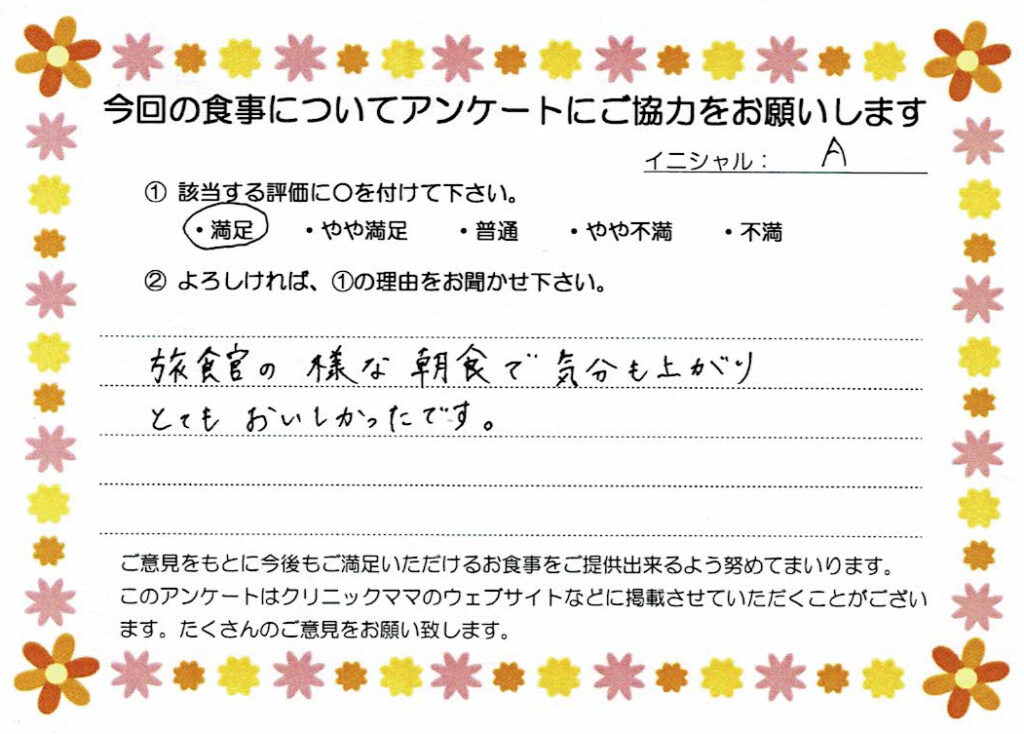 今回の食事についてアンケートにご協力をお願いします
イニシャル： A
① 該当する評価に〇を付けて下さい。
・満足 ・やや満足 ・普通 ・やや不満 ・不満
② よろしければ、①の理由をお聞かせ下さい。
旅食官の様な朝食で気分も上がり
とてもおいしかったです。
ご意見をもとに今後もご満足いただけるお食事をご提供出来るよう努めてまいります。
このアンケートはクリニックママのウェブサイトなどに掲載させていただくことがござい
ます。たくさんのご意見をお願い致します。